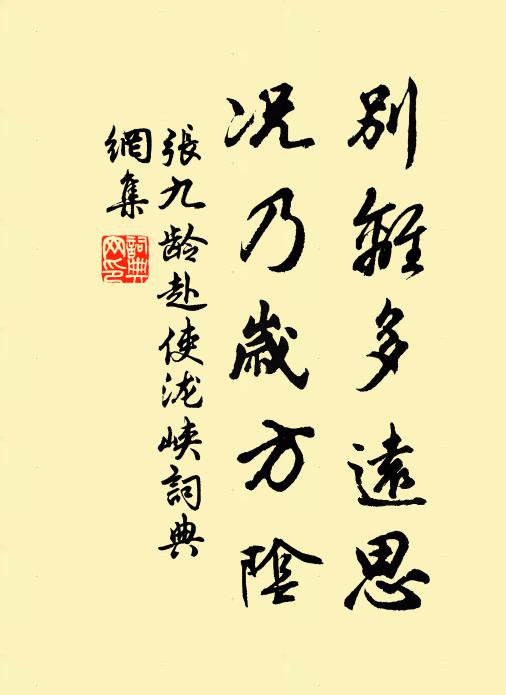 別離多遠思
況乃歲方陰
張九龄赴使泷峽詞典
網集
詞典
网印